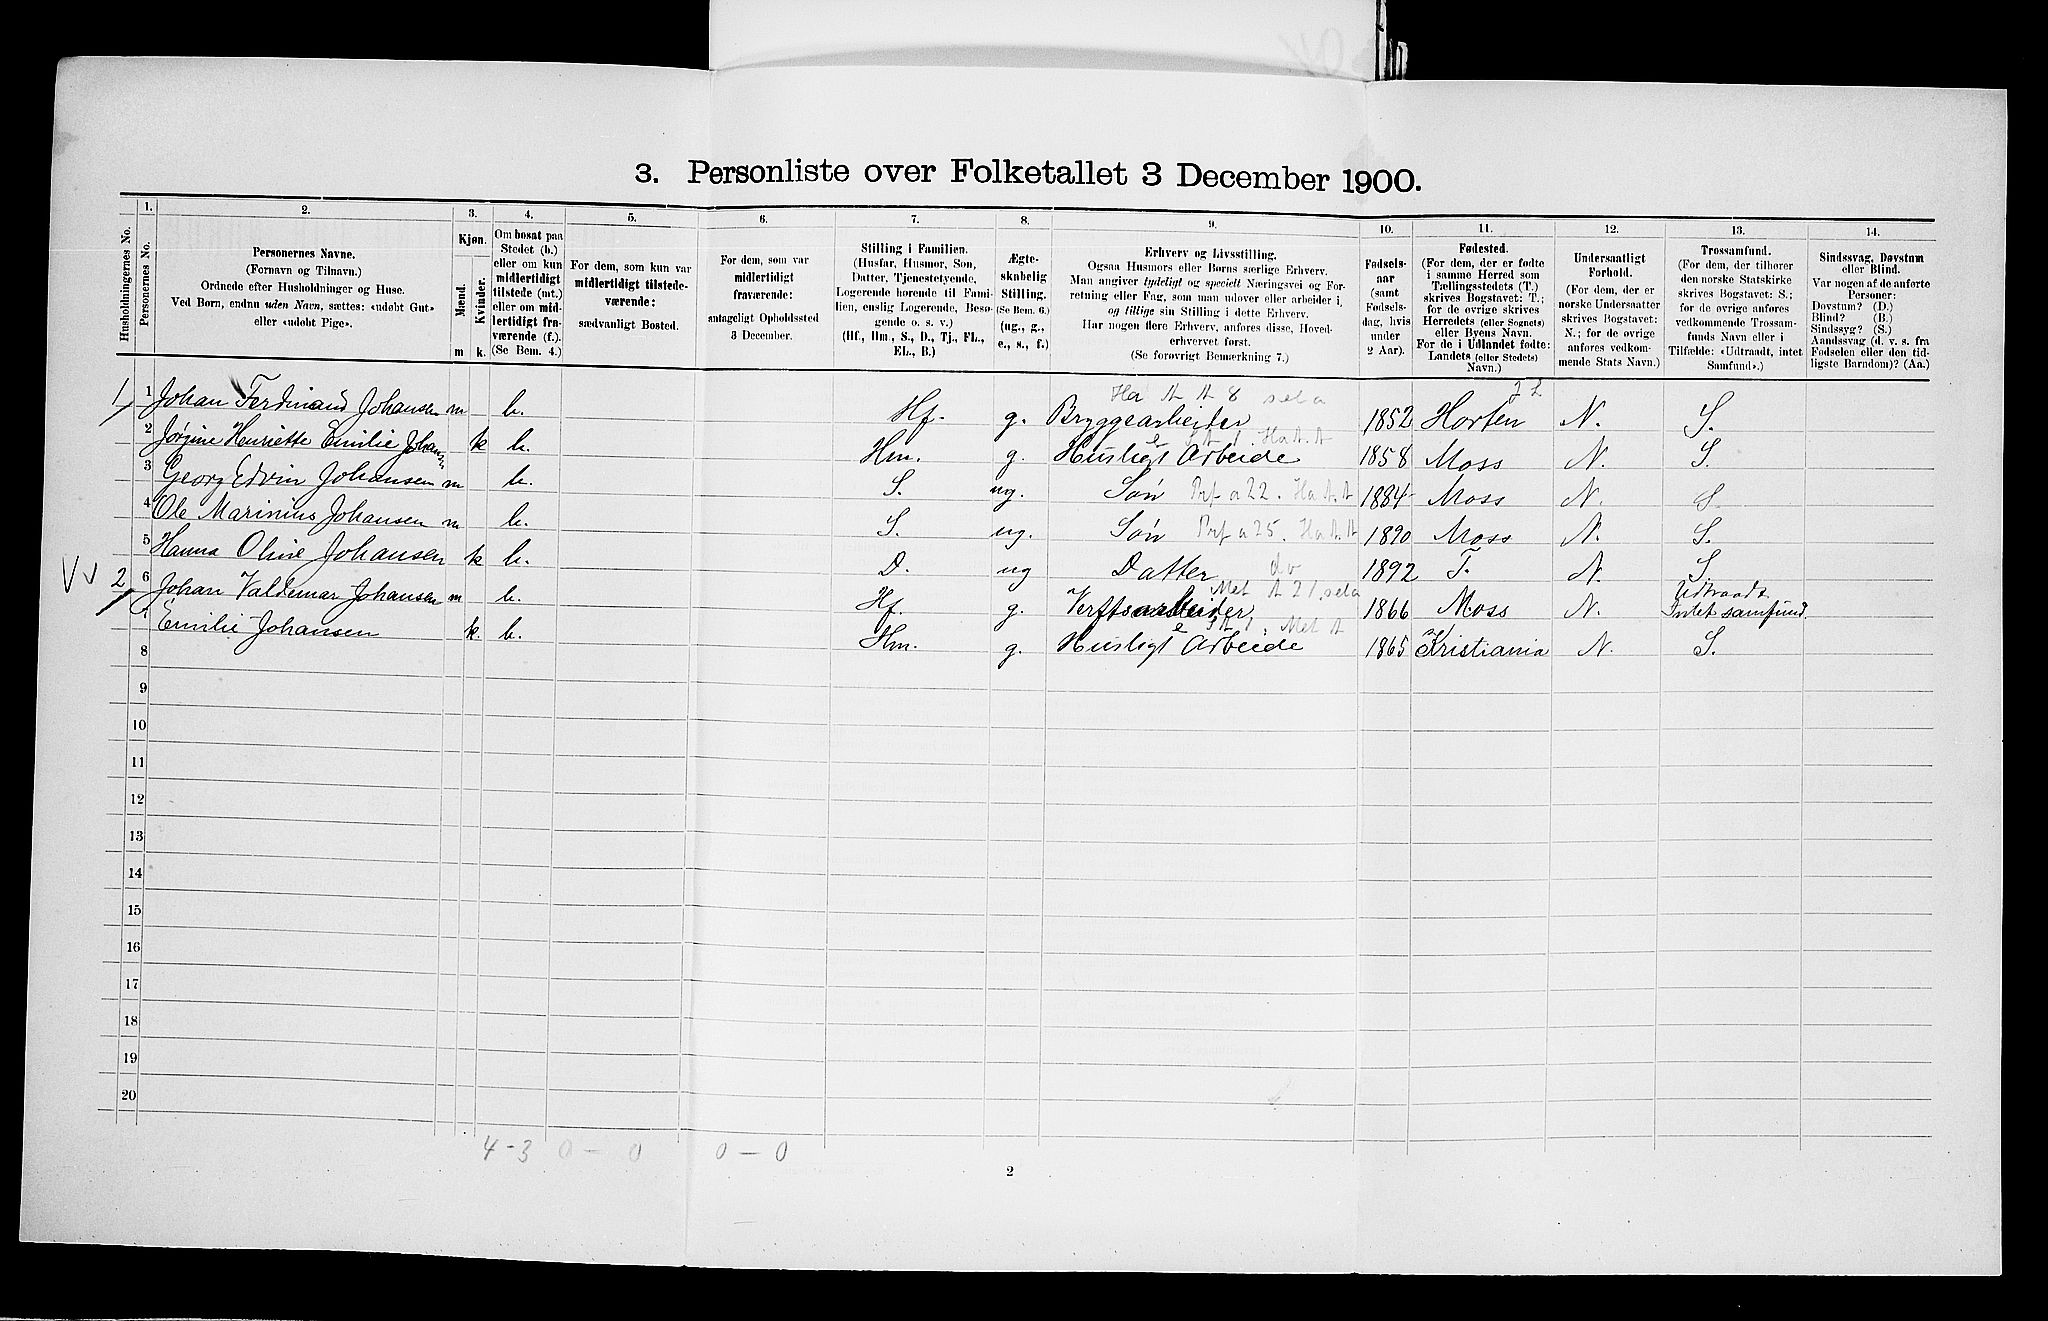 3. Personliste over Folketallet 3 December 1900.
Husholdningernes No.
1.
Personernes No.
2.
Personernes Navne.
(Fornavn og Tilnavn.)
Ordnede efter Husholdninger og Huse.
Ved Børn, endnu uden Navn, sættes: «udøbt Gut»
eller «udøbt Pige».
3.
Kjøn.
Mænd.
Kvinder.
m k.
4.
Om bosat paa
Stedet (b.)
eller om kun
midlertidigt
tilstede (mt.)
eller om mid-
lertidigt fra-
værende (f.).
(Se Bem. 4.)
5.
For dem, som kun var
midlertidigt tilstede-
værende:
sædvanligt Bosted.
6.
For dem, som var
midlertidigt
fraværende:
antageligt Opholdssted
3 December.
7.
Stilling i Familien.
(Husfar, Husmor, Søn,
Datter, Tjenestetyende,
Logerende hørende til Fami-
lien, enslig Logerende, Besø-
gende o. s. v.)
(Hf., Hm., S., D., Tj., FL.,
EL., B.)
8.
Ægte-
skabelig
Stilling.
(Se Bem. 6.)
(ug., g.,
e., s., f.)
9.
Erhverv og Livsstilling.
Ogsaa Husmors eller Børns særlige Erhverv.
Man angiver tydeligt og specielt Næringsvei og For-
retning eller Fag, som man udøver eller arbeider i,
og tillige sin Stilling i dette Erhverv.
Har nogen flere Erhverv, anføres disse, Hoved-
erhvervet først.
(Se forøvrigt Bemærkning 7.)
10.
Fødsels-
aar
(samt
Fødsels-
dag, hvis
under
2 Aar).
11.
Fødested.
(For dem, der er fødte
i samme Herred som
Tællingsstedets (T.)
skrives Bogstavet: T.;
for de øvrige skrives
Herredets (eller Sognets)
eller Byens Navn.
For de i Udlandet fødte:
Landets (eller Stedets)
Navn.)
12.
Undersaatligt
Forhold.
(For dem, der er
norske Undersaatter
skrives Bogstavet:
N.; for de øvrige
anføres vedkom-
mende Stats Navn.)
13.
Trossamfund.
(For dem, der tilhører
den norske Statskirke
skrives Bogstavet: S.;
for de øvrige anføres
vedkommende Trossam-
funds Navn eller i
Tilfælde: «Udtraadt, intet
Samfund».)
14.
Sindssvag, Døvstum
eller Blind.
Var nogen af de anførte
Personer:
Døvstum? (D.)
Blind? (B.)
Sindssyg? (S.)
Aandssvag (d. v. s. fra
Fødselen eller den tid-
ligste Barndom)? (Aa.)
1 1 Johan Ferdinand Johansen m b. Hf. g. Bryggearbeider 1852 Horten N. S.
2 Jørgine Henriette Emilie Johansen k b. Hm. g. Husligt Arbeide 1858 Moss N. S.
3 Georg Edvin Johansen m b. S. ug. Søn 1884 Moss N. S.
4 Ole Marinius Johansen m b. S. ug. Søn 1890 Moss N. S.
5 Hanna Oline Johansen k b. D. ug Datter do 1892 T. N. S.
2 6 Johan Valdemar Johansen m b. Hf. g. Verftsarbeider 1866 Moss N. Udtraadt
Intet samfund.
7 Emilie Johansen k. b. Hm. g. Husligt Arbeide 1865 Kristiania N. S.
8
9
10
11
12
13
14
15
16
17
18
19
20
4-3 0-0 0-0
2